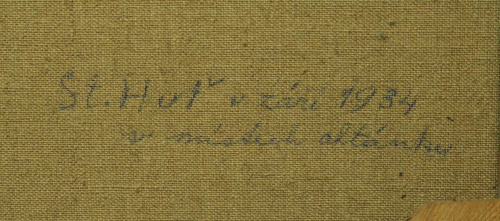 St. Huť v září 1934
v místech altánku